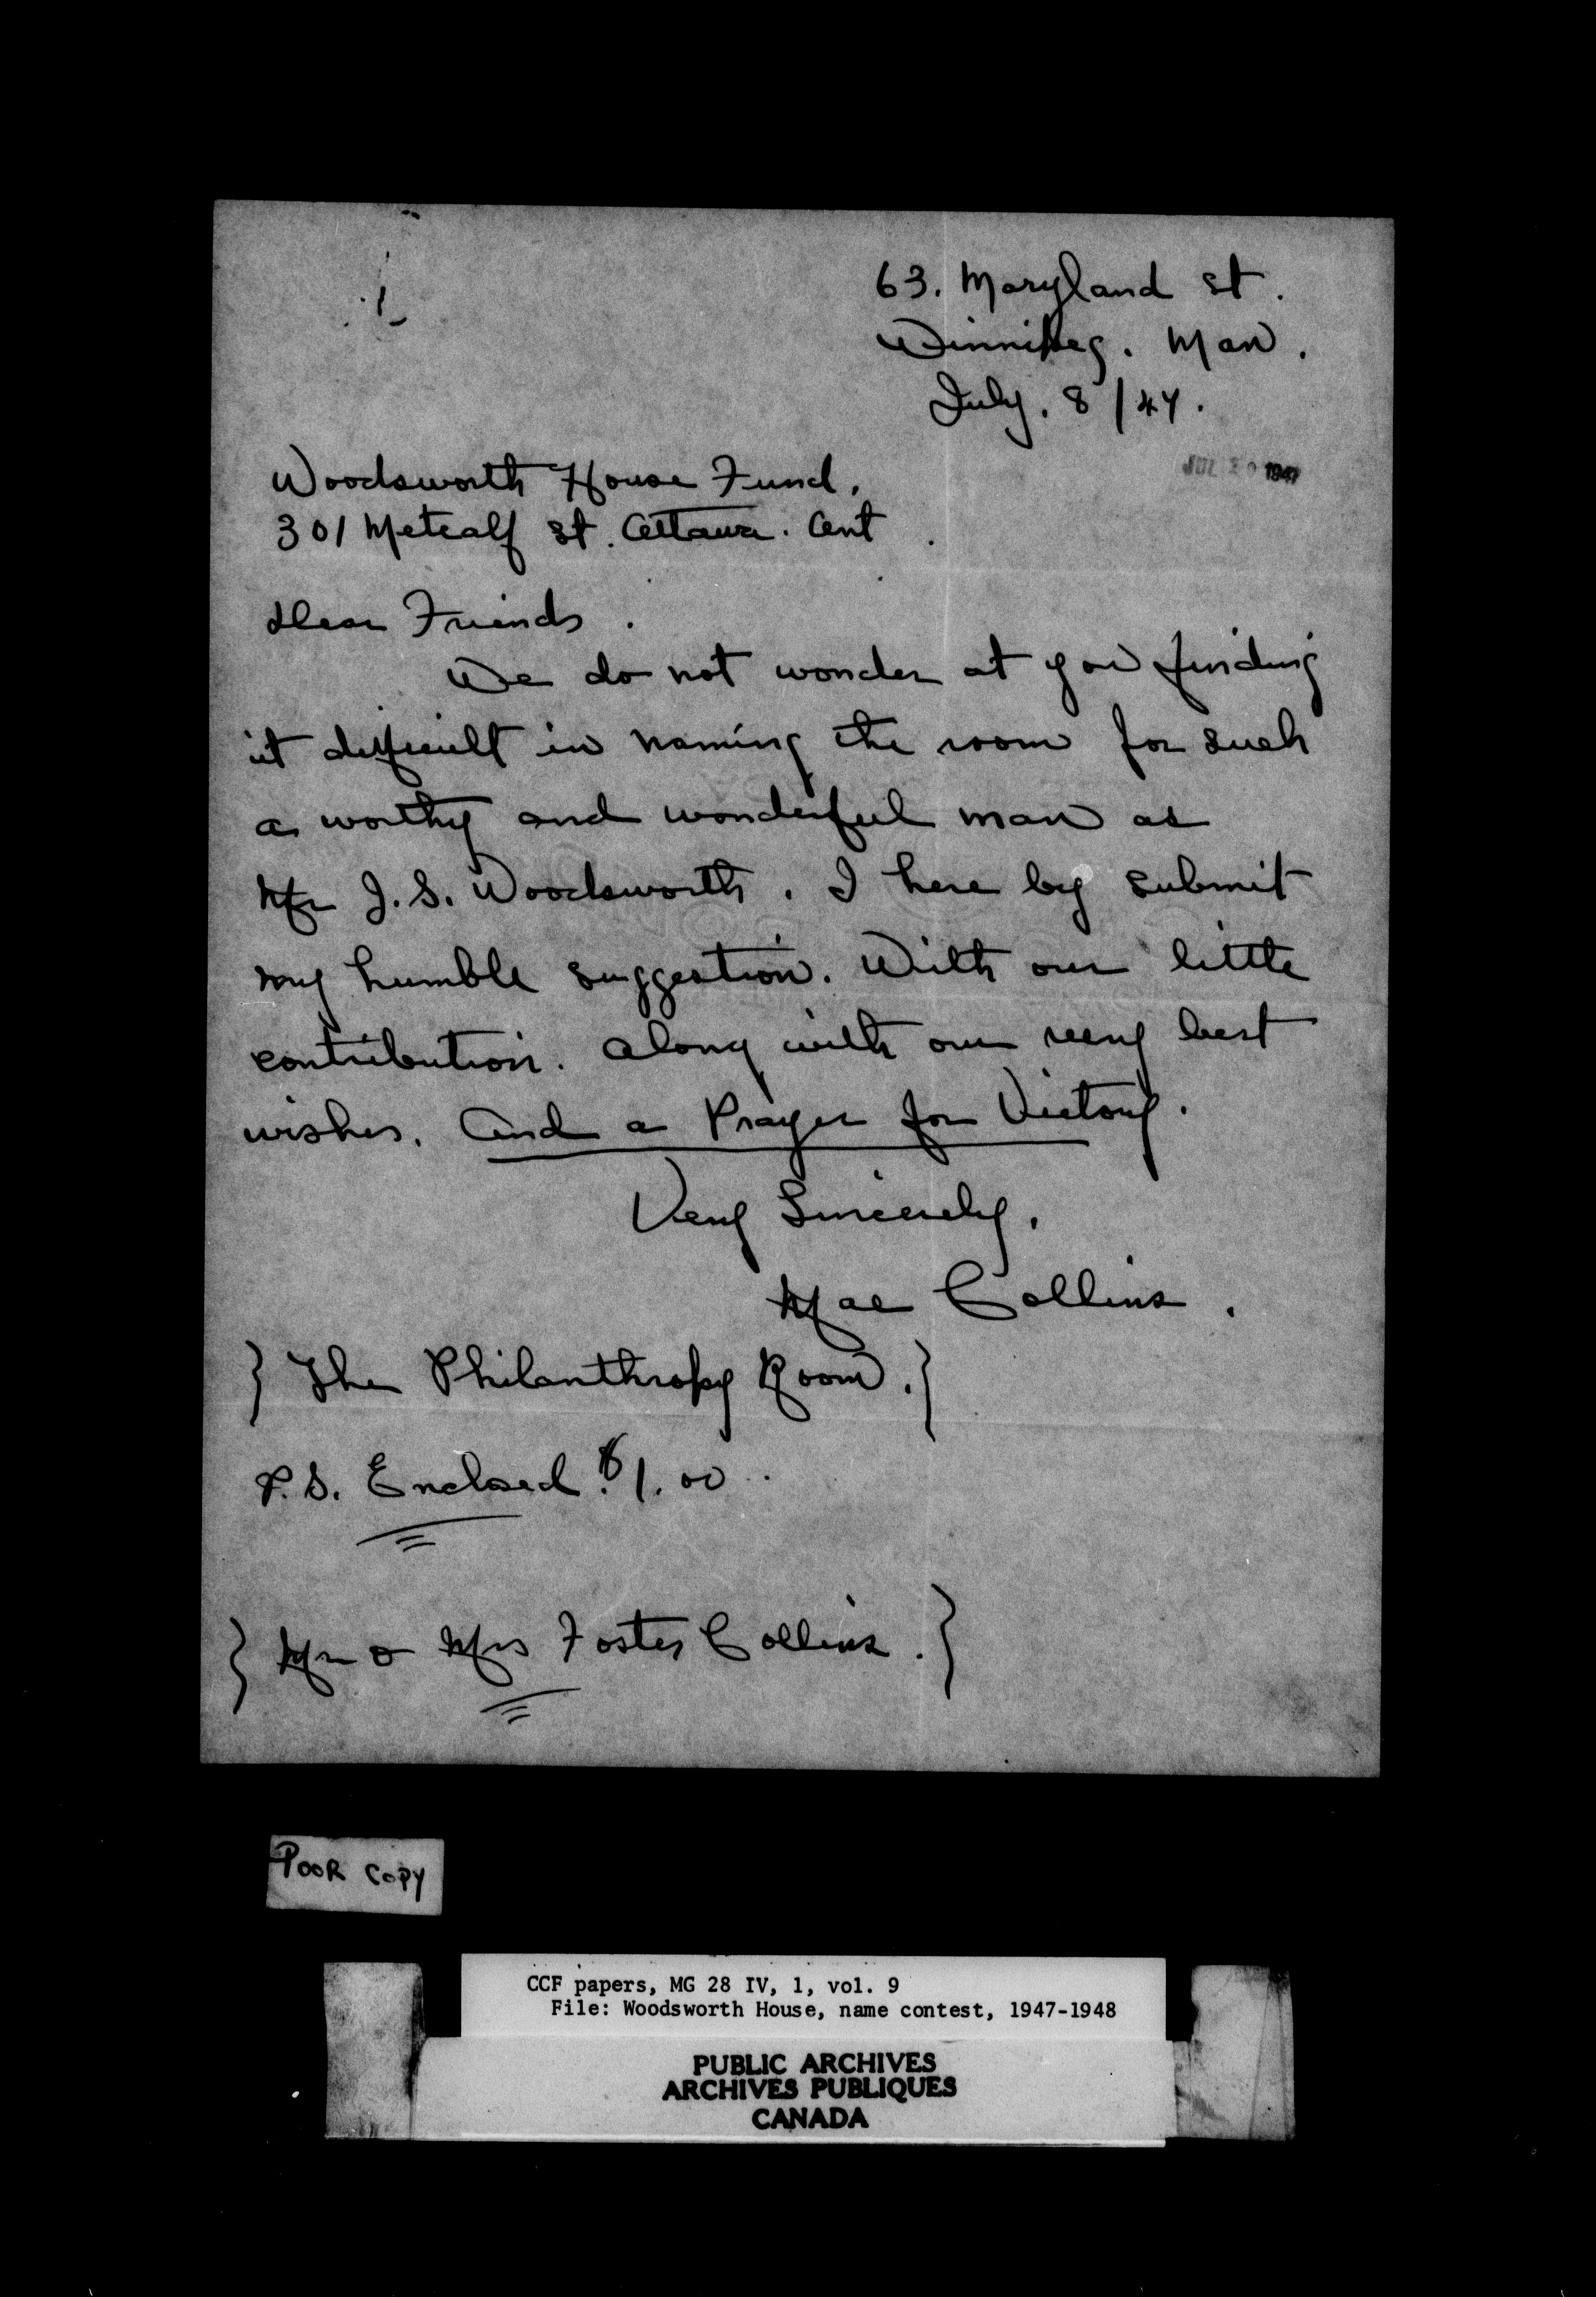 63. Maryland St.
Winnipeg. Man.
July. 8/47.
JUL 1947
Woodsworth House Fund,
301 Metcalf St. Ottawa. Ont.
Dear Friends.
We do not wonder at you finding
it difficult in naming the room for such
a worthy and wonderful man as
Mr J.S. Woodsworth. I here by submit
my humble suggestion. With our little
contribution. along with our very best
wishes. And a Prayer for Victory.
Very Sincerely,
Mae Collins.
} The Philanthropy Room. }
P.S. Enclosed $1.00
} Mr & Mrs Foster Collins. }
POOR COPY
CCF papers, MG 28 IV, 1, vol. 9
File: Woodsworth House, name contest, 1947-1948
PUBLIC ARCHIVES
ARCHIVES PUBLIQUES
CANADA